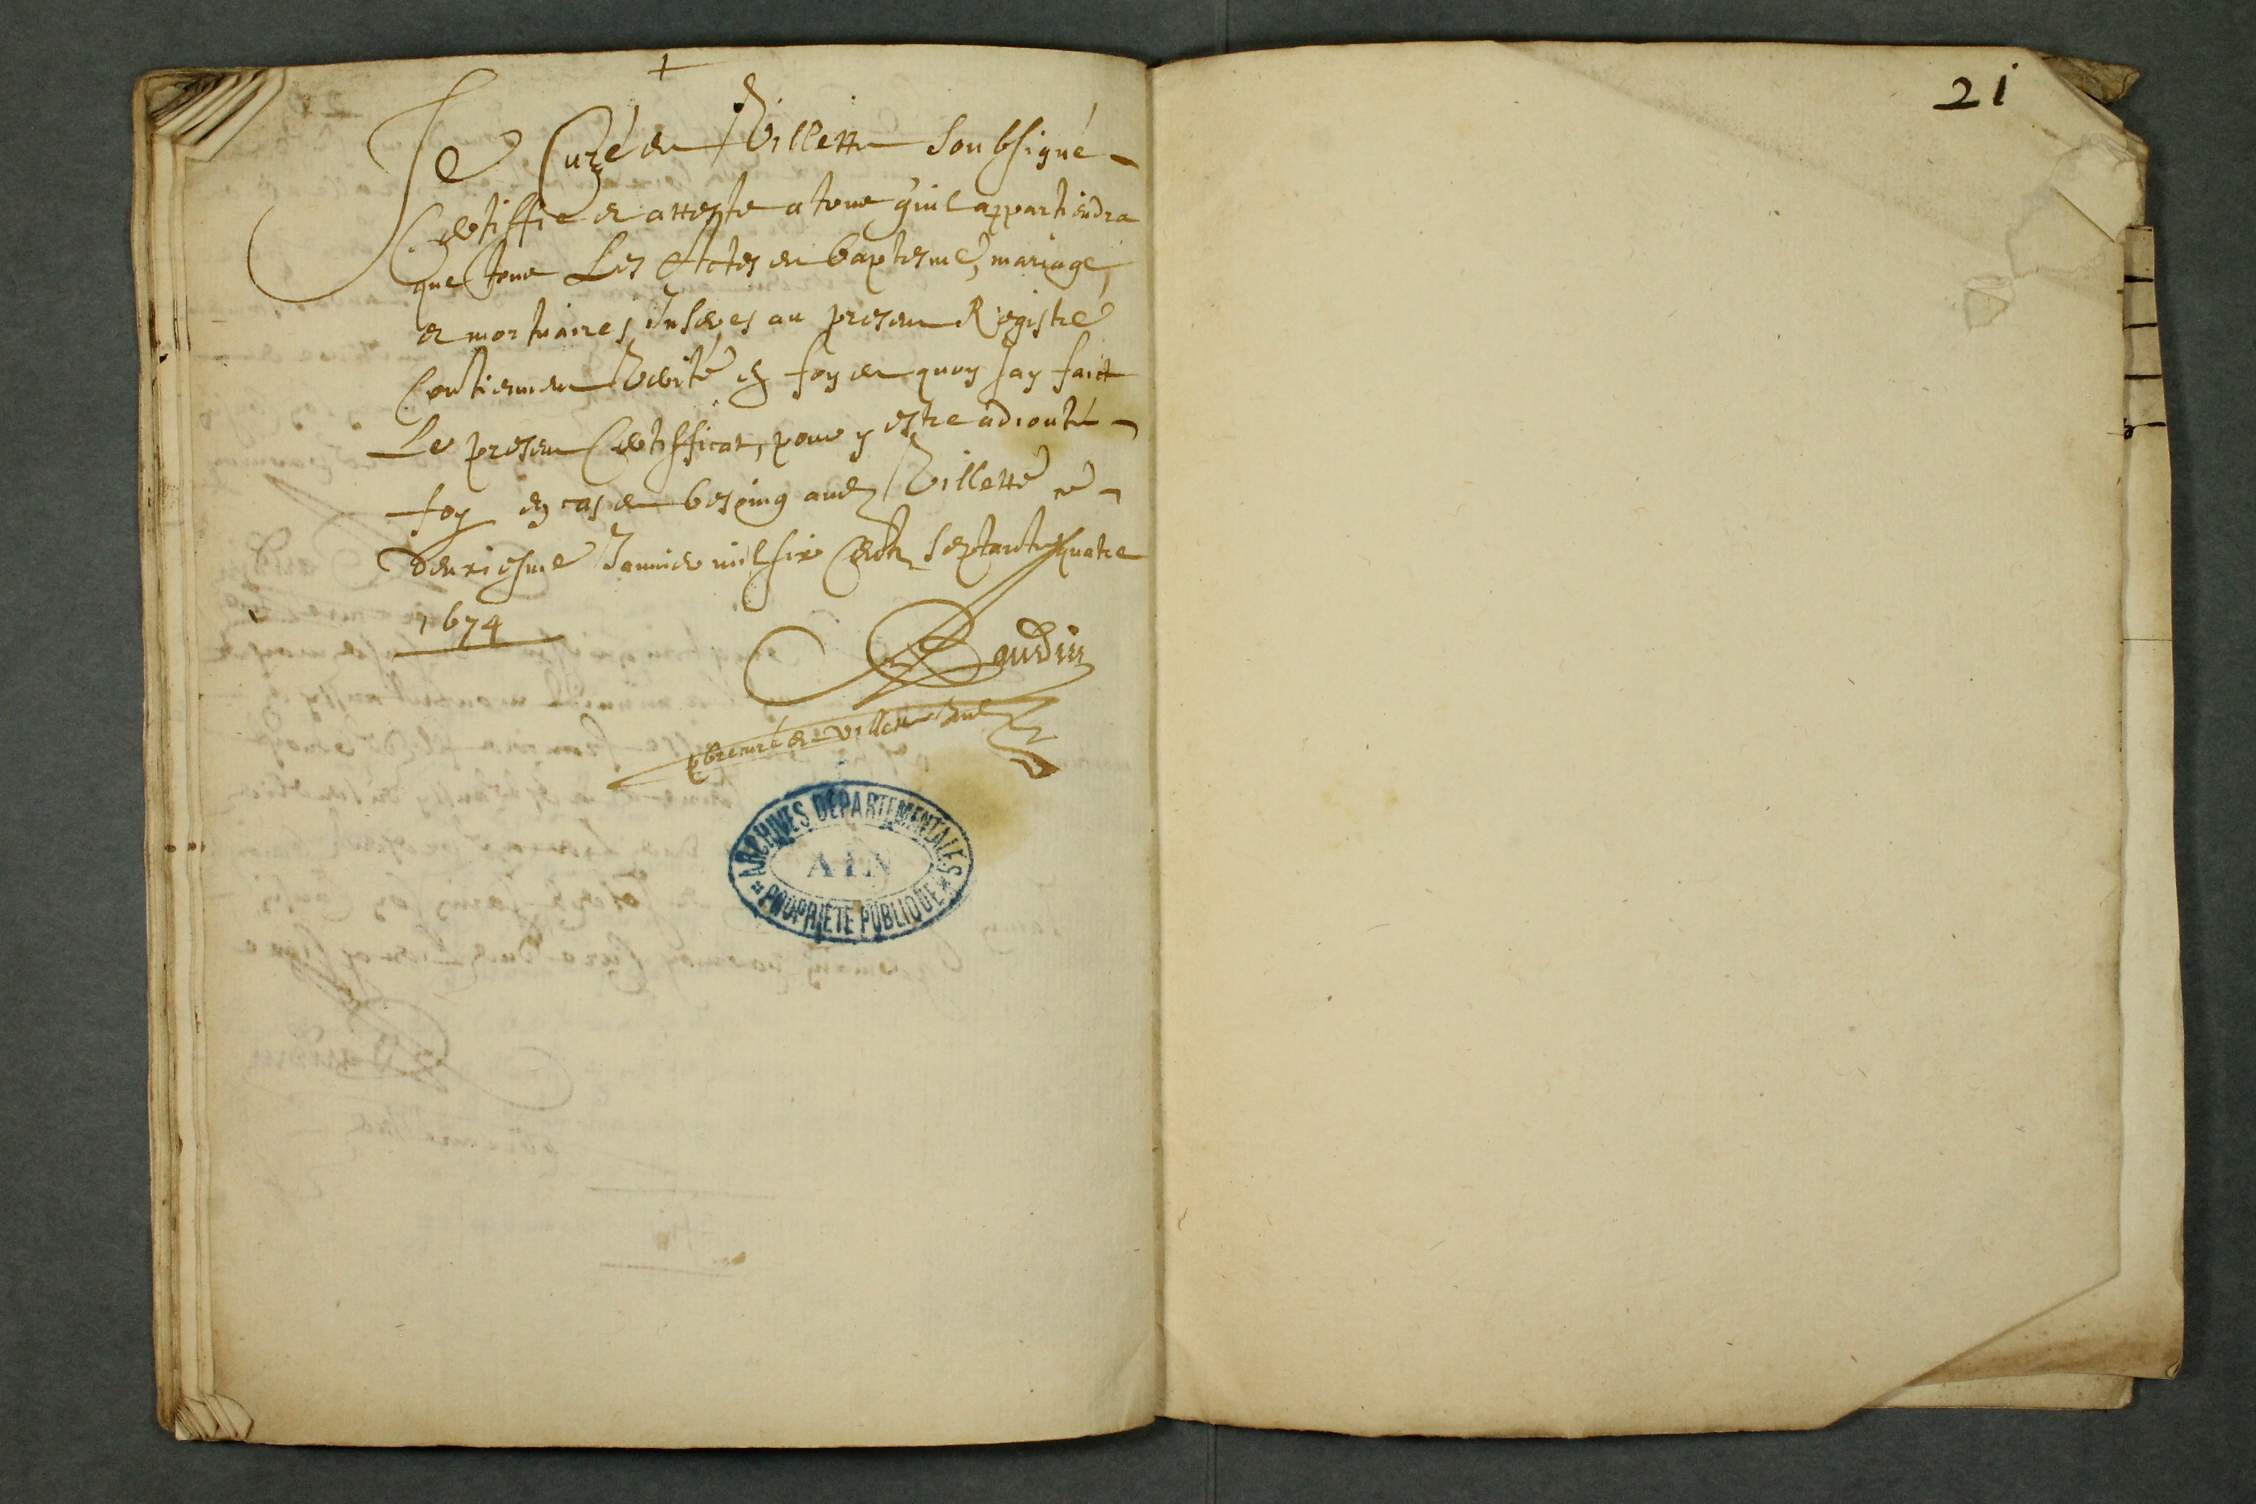 +
Je Curé de Villette Soubsigné
Certiffie et atteste a tous quil appartiendra
que tous Les Actes de baptesme, mariage,
et mortuaires Inseres au present Registre
Contiennent Verité en foy de quoy Jay faict
Le present Certifficat, pour y estre adiouté
foy en cas de besoing audt Villette ce
deuxiesme Januier mil six Centz septante quatre
1674
Baudin
pbre curé de villette
ARCHIVES DEPARTEMENTALES
AIN
PROPRIETE PUBLIQUE
21